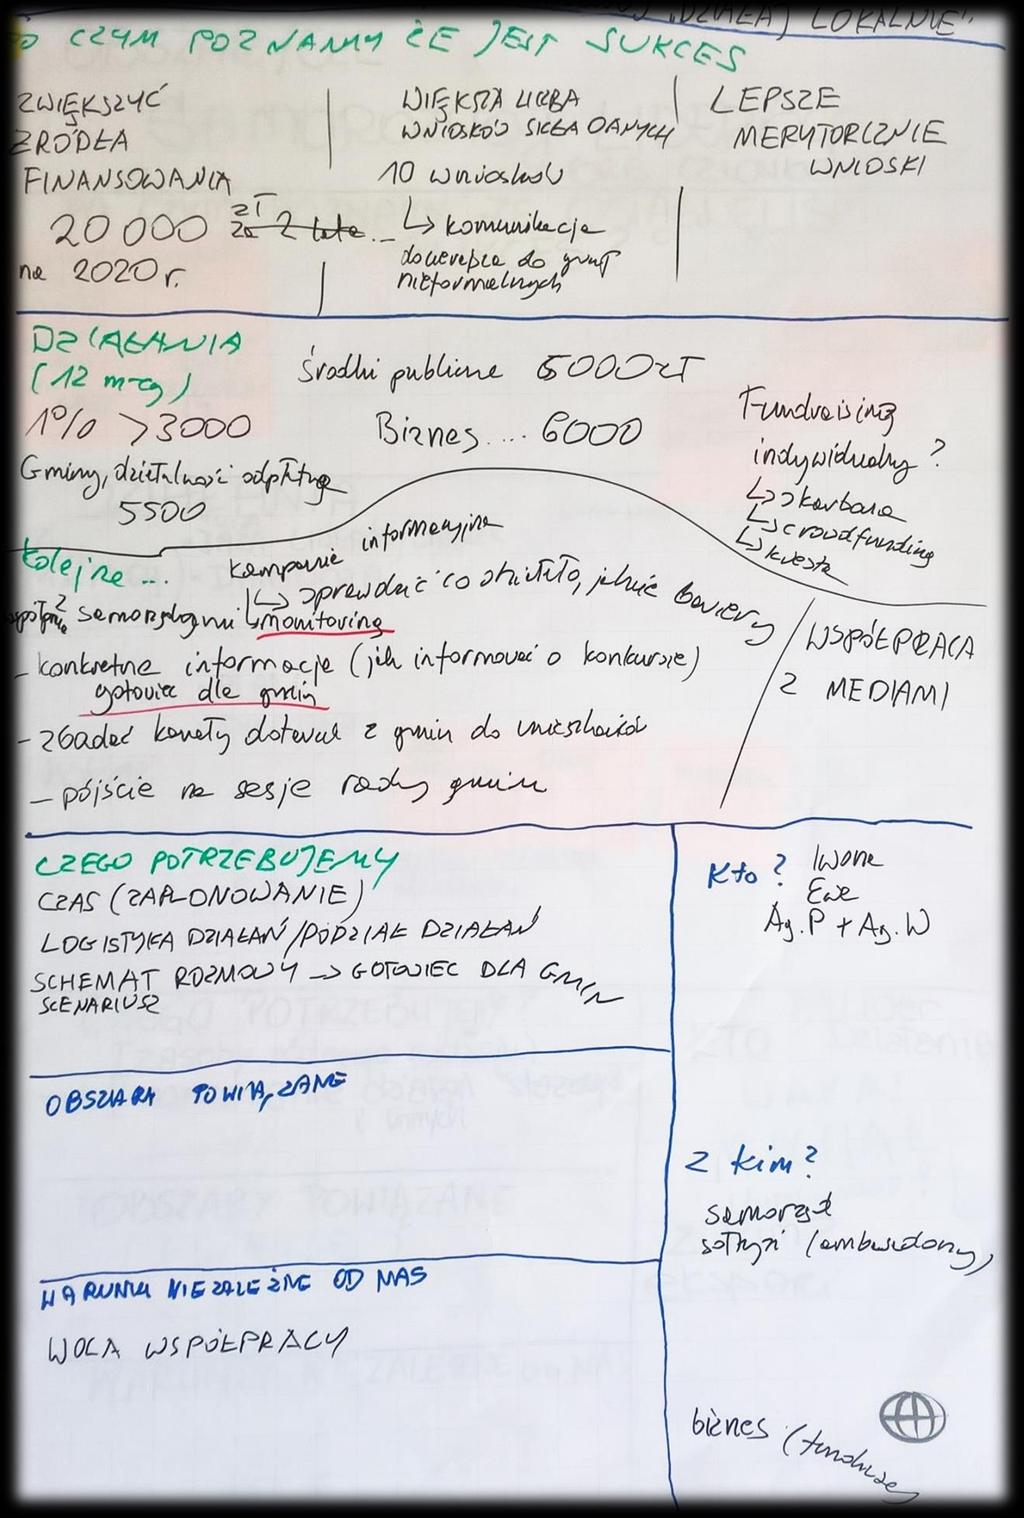 DZIAŁAJ LOKALNIE"
PO CZYM POZNAMY ŻE JEST SUKCES
ZWIĘKSZYĆ
ŹRÓDŁA
FINANSOWANIA
20 000 zł
za 2 lata...
na 2020 r.
WIĘKSZA LICZBA
WNIOSKÓW SKŁADANYCH
10 wniosków
↳ komunikacja
docierająca do grup
nieformalnych
LEPSZE
MERYTORYCZNIE
WNIOSKI
DZIAŁANIA
(12 m-cy)
1% >3000
Gminy, działalność odpłatna
5500
Środki publiczne 5000 zł
Biznes.... 6000
Fundraising
indywidualny ?
↳ skarbona
↳ crowdfunding
↳ kwesta
Kolejne ...
kampanie informacyjne
↳ sprawdzić co działało, jakie bariery
współpraca z samorządami ↳ monitoring
- konkretne informacje (jak informować o konkursie)
gotowiec dla gmin
- zbadać kanały dotarcia z gmin do mieszkańców
- pójście na sesje rady gminy
WSPÓŁPRACA
Z MEDIAMI
CZEGO POTRZEBUJEMY
CZAS (ZAPLONOWANIE)
LOGISTYKA DZIAŁAŃ/PODZIAŁ DZIAŁAŃ
SCHEMAT ROZMOWY → GOTOWIEC DLA GMIN
SCENARIUSZ
KTO? Iwona
Ewa
Ag.P + Ag.W
OBSZARY POWIĄZANE
Z kim?
samorząd
sołtysi (ambasadorzy)
WARUNKI NIEZALEŻNE OD NAS
WOLA WSPÓŁPRACY
biznes (fundusze)